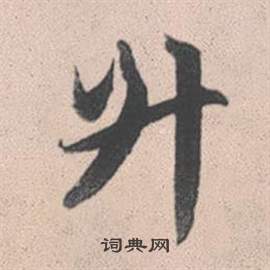 升
词典网